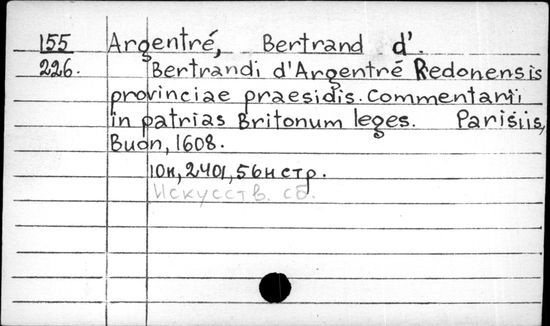 155 Argentré, Bertrand d'.
226. Bertrandi d'Argentré Redonensis
provinciae praesidis. Commentarii,
in patrias Britonum leges. Parisiis,
Buon, 1608.
10н, 2401, 56н стр.
Искусств. сб.